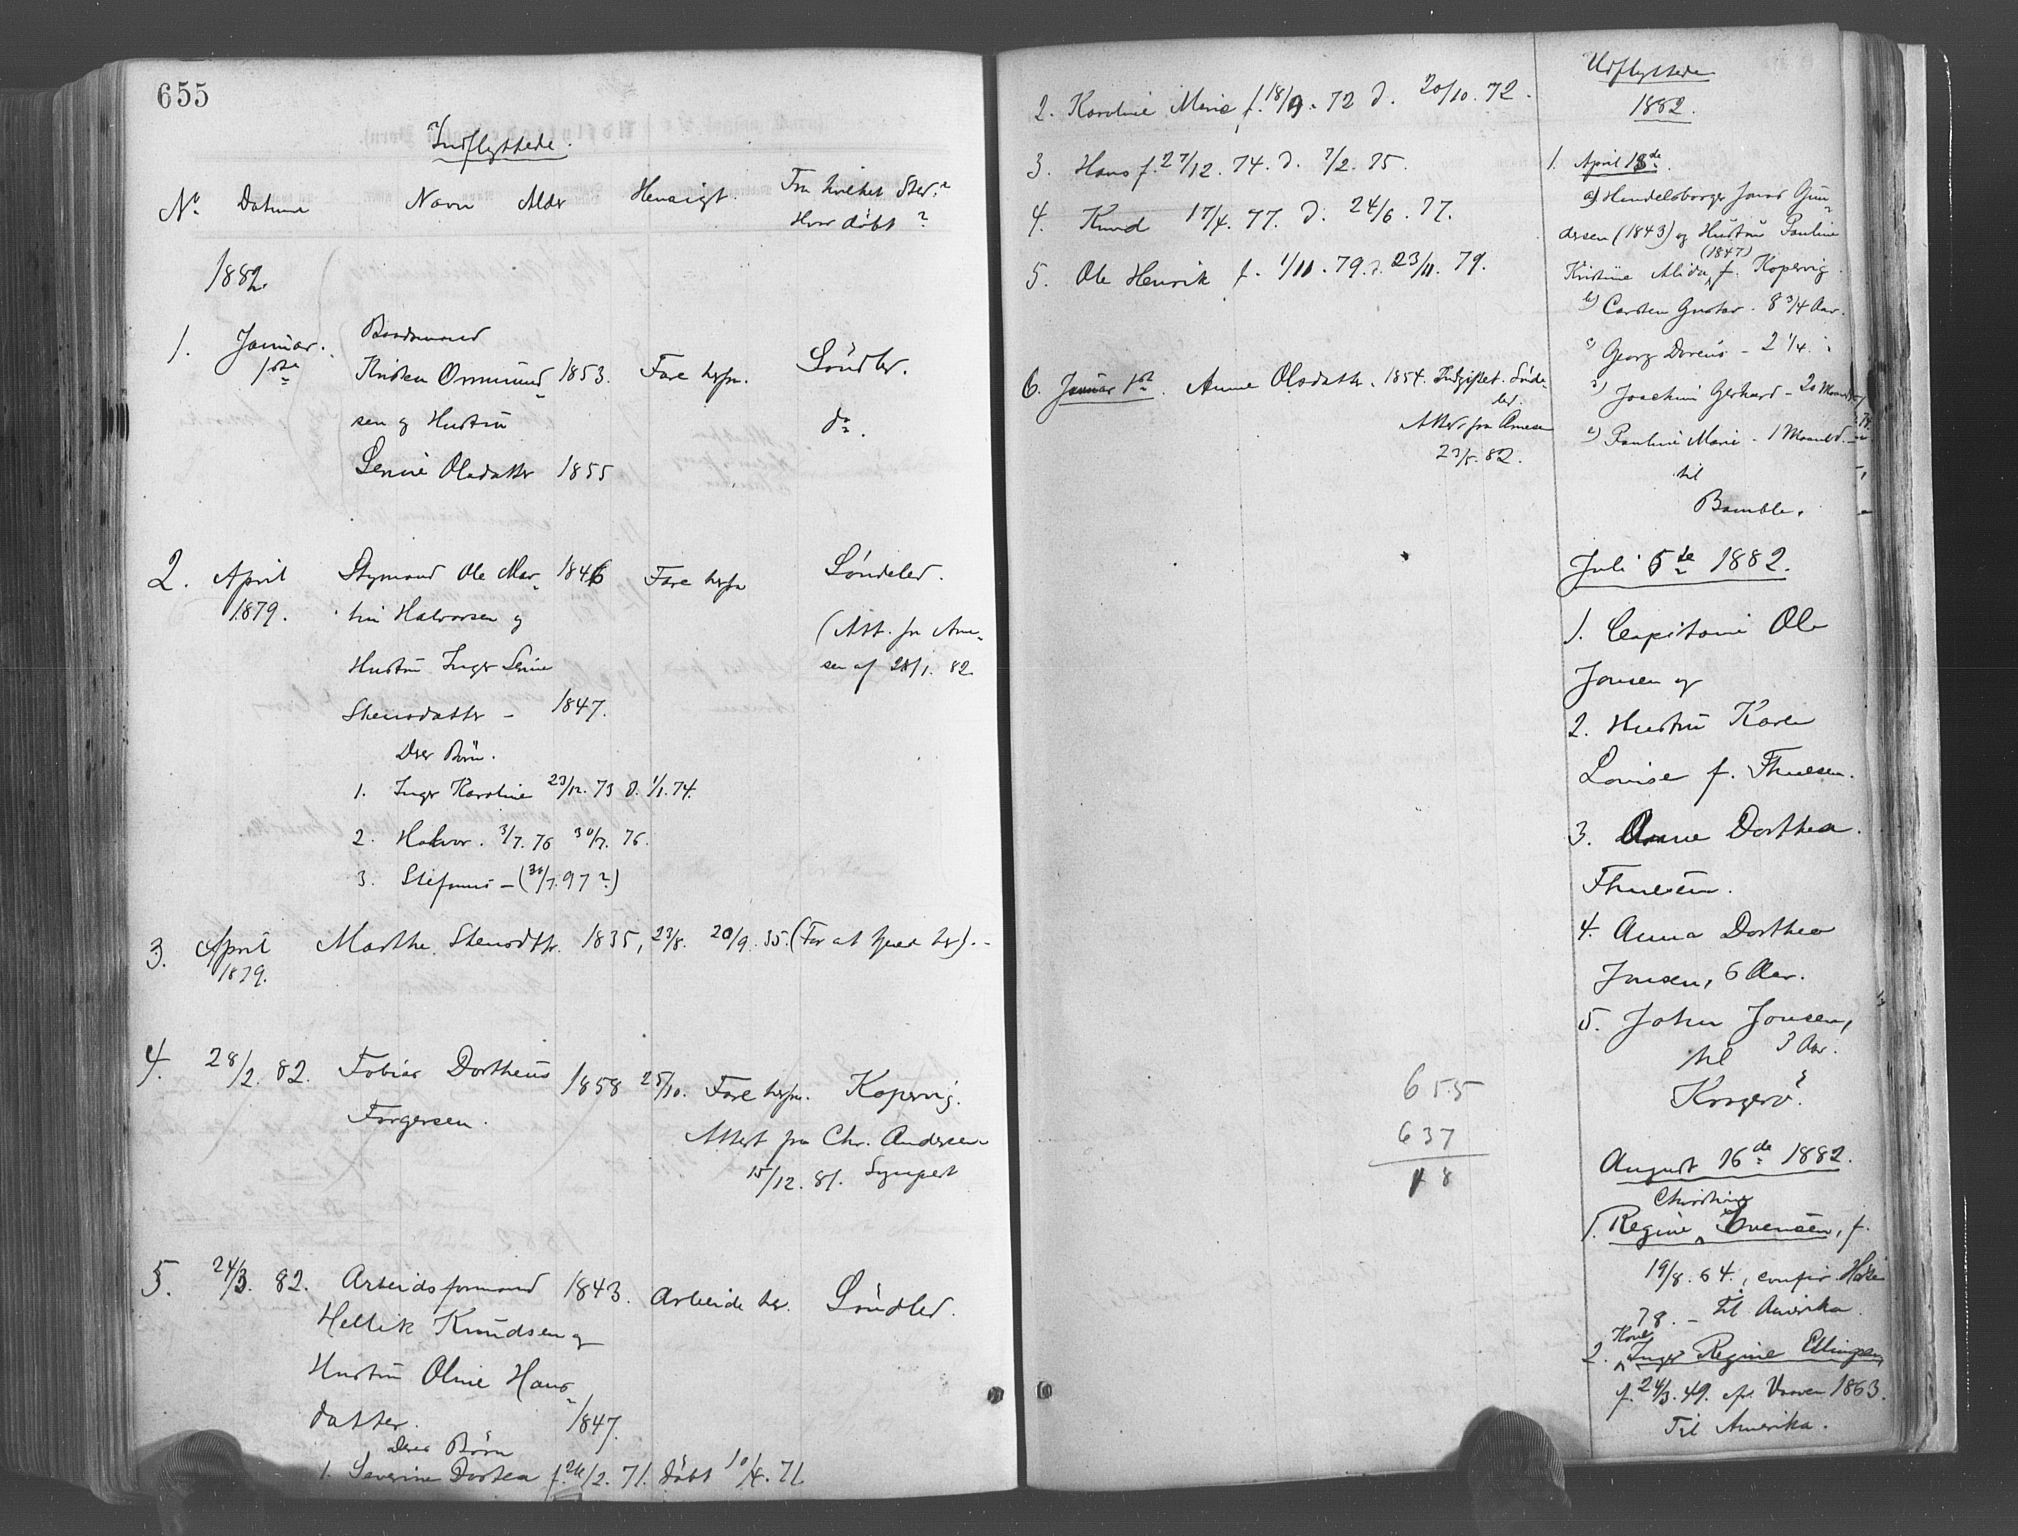 655
Indflyttede.
No Datum Navn Alder Hensigt. Fra hvilket Sted?
Hvor døbt?
1882.
1. Januar 1ste Baadsmand
Kristen Ommund- 1853. Fare herfra. Søndeled.
sen og Hustru do.
Serine Olsdatter 1855
2. April Styrmand Ole Mar- 1846 Fare herfra Søndeled.
1879. tin Halvorsen og (Att. fra Arne-
Hustru Inger Serine sen af 28/1. 82.
Stensdatter - 1847.
Deres Børn.
1. Inger Karoline 23/12. 73 d. 1/1. 74.
2. Halvor. 3/7. 76 30/7. 76.
3. Stefanus - (30/7. 97?)
3. April Marthe Stensdtr. 1835, 23/8. 20/9. 35. (For at tjene her). -
1879.
4. 28/2. 82. Tobias Dortheus 1858 25/10. Fare herfra. Kopervig.
Torgersen. Attest fra Chr. Andersen
15/12. 81.
5. 24/3. 82. Arbeidsformand 1843. Arbeide her. Søndled.
Hellik Knudsen og
Hustru Oline Hans-
datter. 1847.
Deres Børn
1. Severine Dortea f. 26/2. 71. døbt 10/4. 71.
2. Karoline Marie f. 18/9. 72 d. 20/10. 72.
3. Hans f. 27/12. 74. d. 7/2. 75.
4. Knud 17/4. 77. d. 24/6. 77.
5. Ole Henrik f. 1/11. 79. d. 23/11. 79.
6. Januar 1ste. Anne Olsdatter. 1854. Indgiftet. Sønde-
led.
Attest fra Arnesen
23/5. 82.
655
637
18
Udflyttede
1882.
1. April 13de.
a) Handelsborger Jonas Gun-
dersen (1843) og Hustru Pauline
(1847)
Kristine Alida, f. Kopervig.
b) Carsten Gustav. 8 3/4 Aar.
c) Georg Doreus - 2 1/4. "
d) Joachim Gerhard - 20 Maaneder
e) Pauline Marie - 1 Maaned.
til
Bamble.
Juli 5te 1882.
1. Capitain Ole
Jonsen og
2. Hustru Karen
Louise f. Thuesen.
3. Anne Dorthea
Thuesen.
4. Anna Dorthea
Jonsen, 6 Aar.
5. John Jonsen,
3 Aar.
til
Kragerø.
August 16de 1882.
Christine
1. Regine Evensen, f.
19/8. 64., confir. Høsten
78. - Til Amerika.
2. Inger Regine Ellingsen,
f. 24/3. 49. Vaaren 1863.
Til Amerika.